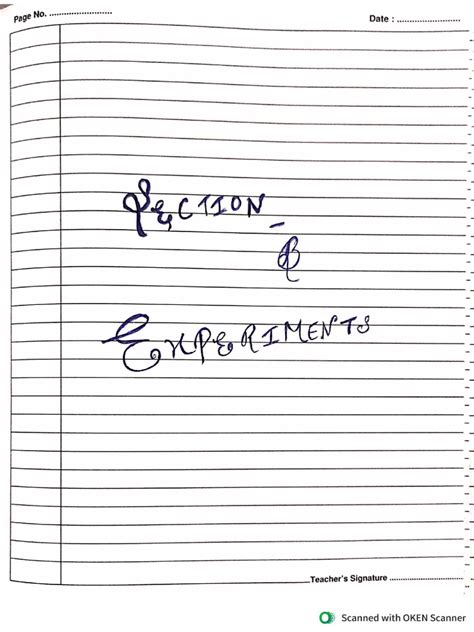 Page No. ........................
Date : ........................
SECTION
- B
EXPERIMENTS
Teacher's Signature ........................
Scanned with OKEN Scanner